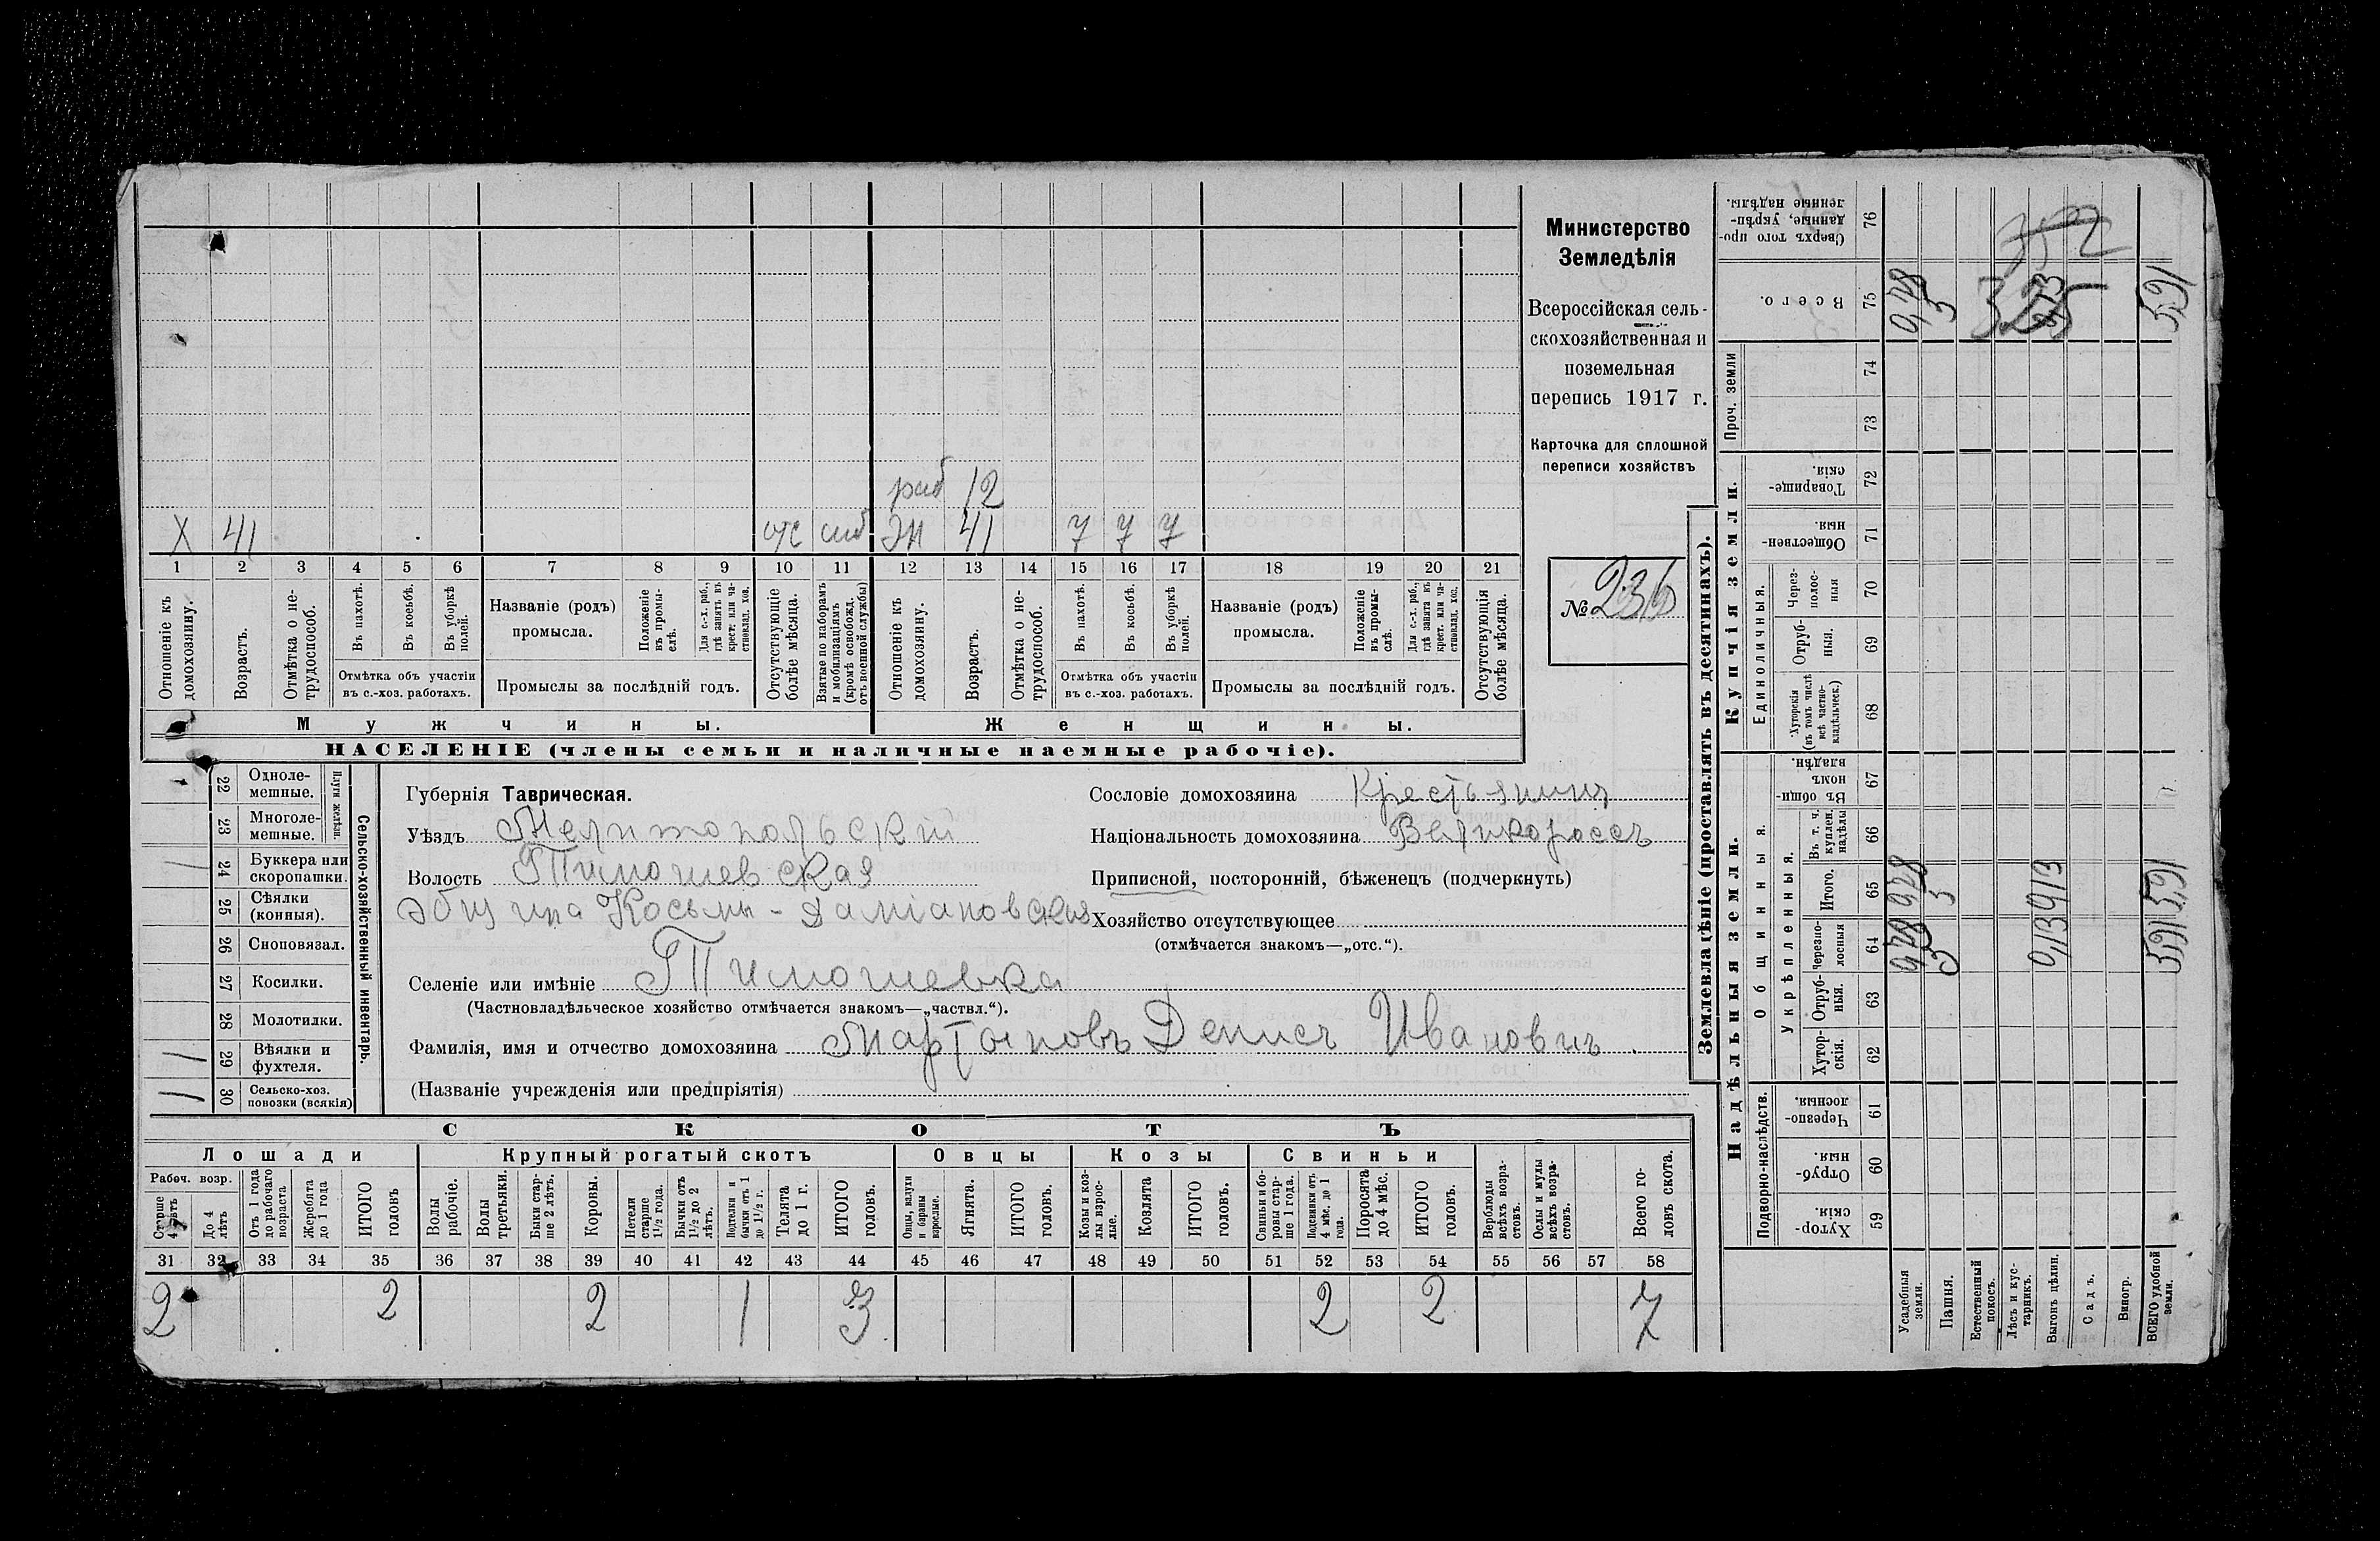 раб 12
Х 41 отс моб жн 41 7 7 7
1 2 3 4 5 6 7 8 9 10 11 12 13 14 15 16 17 18 19 20 21
Отношеніе къ домохозяину.
Возрастъ.
Отмѣтка о не-
трудоспособ.
Въ пахотѣ.
Въ косьбѣ.
Въ уборкѣ
полей.
Отмѣтка объ участіи
въ с.-хоз. работахъ.
Названіе (родъ)
промысла.
Положеніе
въ промы-
слѣ.
Для с.-х. раб.,
гдѣ занятъ въ
крест. или ча-
стновлад. хоз.
Промыслы за послѣдній годъ.
Отсутствующіе
болѣе мѣсяца.
Взятые по наборамъ
и мобилизаціямъ
(кромѣ освобожд.
отъ военной службы)
Отношеніе къ
домохозяину.
Возрастъ.
Отмѣтка о не-
трудоспособ.
Въ пахотѣ.
Въ косьбѣ.
Въ уборкѣ
полей.
Отмѣтка объ участіи
въ с.-хоз. работахъ.
Названіе (родъ)
промысла.
Положеніе
въ промы-
слѣ.
Для с.-х. раб.,
гдѣ занята въ
крест. или ча-
стновлад. хоз.
Промыслы за послѣдній годъ.
Отсутствующія
болѣе мѣсяца.
Мужчины.
Женщины.
НАСЕЛЕНІЕ (члены семьи и наличные наемные рабочіе).
Министерство
Земледѣлія
Всероссійская сель-
скохозяйственная и
поземельная
перепись 1917 г.
Карточка для сплошной
переписи хозяйствъ
№ 236
22 Одноле-
мешные.
23 Многоле-
мешные.
Плуги желѣзн.
24 Буккера или
скоропашки.
25 Сѣялки
(конныя).
26 Сноповязал.
27 Косилки.
28 Молотилки.
29 Вѣялки и
фухтеля.
30 Сельско-хоз.
повозки (всякія)
Сельско-хозяйственный инвентарь.
Губернія Таврическая.
Уѣздъ Мелитопольскій
Волость Тимошевская
Община Косьмы-Даміановская
Селеніе или имѣніе Тимошевка
(Частновладѣльческое хозяйство отмѣчается знакомъ—„частвл.“).
Фамилія, имя и отчество домохозяина Мартыновъ Денисъ Ивановичъ.
(Названіе учрежденія или предпріятія)
Сословіе домохозяина Крестьянинъ
Національность домохозяина Великороссъ
Приписной, посторонній, бѣженецъ (подчеркнуть)
Хозяйство отсутствующее
(отмѣчается знакомъ—„отс.“).
СКОТЪ
Лошади
Крупный рогатый скотъ
Овцы
Козы
Свиньи
Рабоч. возр.
Старше
4 лѣтъ
До 4
лѣтъ
Отъ 1 года
до рабочаго
возраста
Жеребята
до 1 года
ИТОГО
головъ
Волы
рабочіе.
Волы
третьяки.
Быки стар-
ше 2 лѣтъ.
Коровы.
Нетели
старше
1½ года.
Бычки отъ
1½ до 2
лѣтъ.
Подтелки и
бычки отъ 1
до 1½ г.
Телята
до 1 г.
ИТОГО
головъ.
Овцы, валухи
и бараны
взрослые.
Ягнята.
ИТОГО
головъ.
Козы и коз-
лы взрос-
лые.
Козлята
ИТОГО
головъ.
Свиньи и бо-
ровы стар-
ше 1 года.
Подсвинки отъ
4 мѣс. до 1
года.
Поросята
до 4 мѣс.
ИТОГО
головъ.
Верблюды
всѣхъ возра-
стовъ.
Ослы и мулы
всѣхъ возра-
стовъ.
Всего го-
ловъ скота.
31 32 33 34 35 36 37 38 39 40 41 42 43 44 45 46 47 48 49 50 51 52 53 54 55 56 57 58
2 2 2 1 3 2 2 7
Землевладѣніе (проставлять въ десятинахъ).
Надѣльныя земли.
Купчія земли.
Проч. земли
Подворно-наслѣдств.
Общинныя.
Укрѣпленныя.
Единоличныя.
Сверхъ того про-
данные, укрѣп-
ленные надѣлы.
76
Всего.
75
74
73
Товарище-
скія.
72
Обществен-
ныя.
71
Через-
полос-
ныя
70
Отруб-
ныя.
69
Хуторскія
(въ томъ числѣ
всѣ частно-
владѣльческ.)
68
Въ общин-
номъ
владѣн.
67
Въ т. ч.
куплен.
надѣлы
66
Итого.
65
Черезпо-
лосныя
64
Отруб-
ныя.
63
Хутор-
скія.
62
Черезпо-
лосныя.
61
Отруб-
ныя.
60
Хутор-
скія.
59
Усадебныя
земли.
Пашня.
Естественный
покосъ.
Лѣсъ и кус-
тарникъ.
Выгонъ цѣлин.
Садъ.
Виногр.
ВСЕГО удобной
земли.